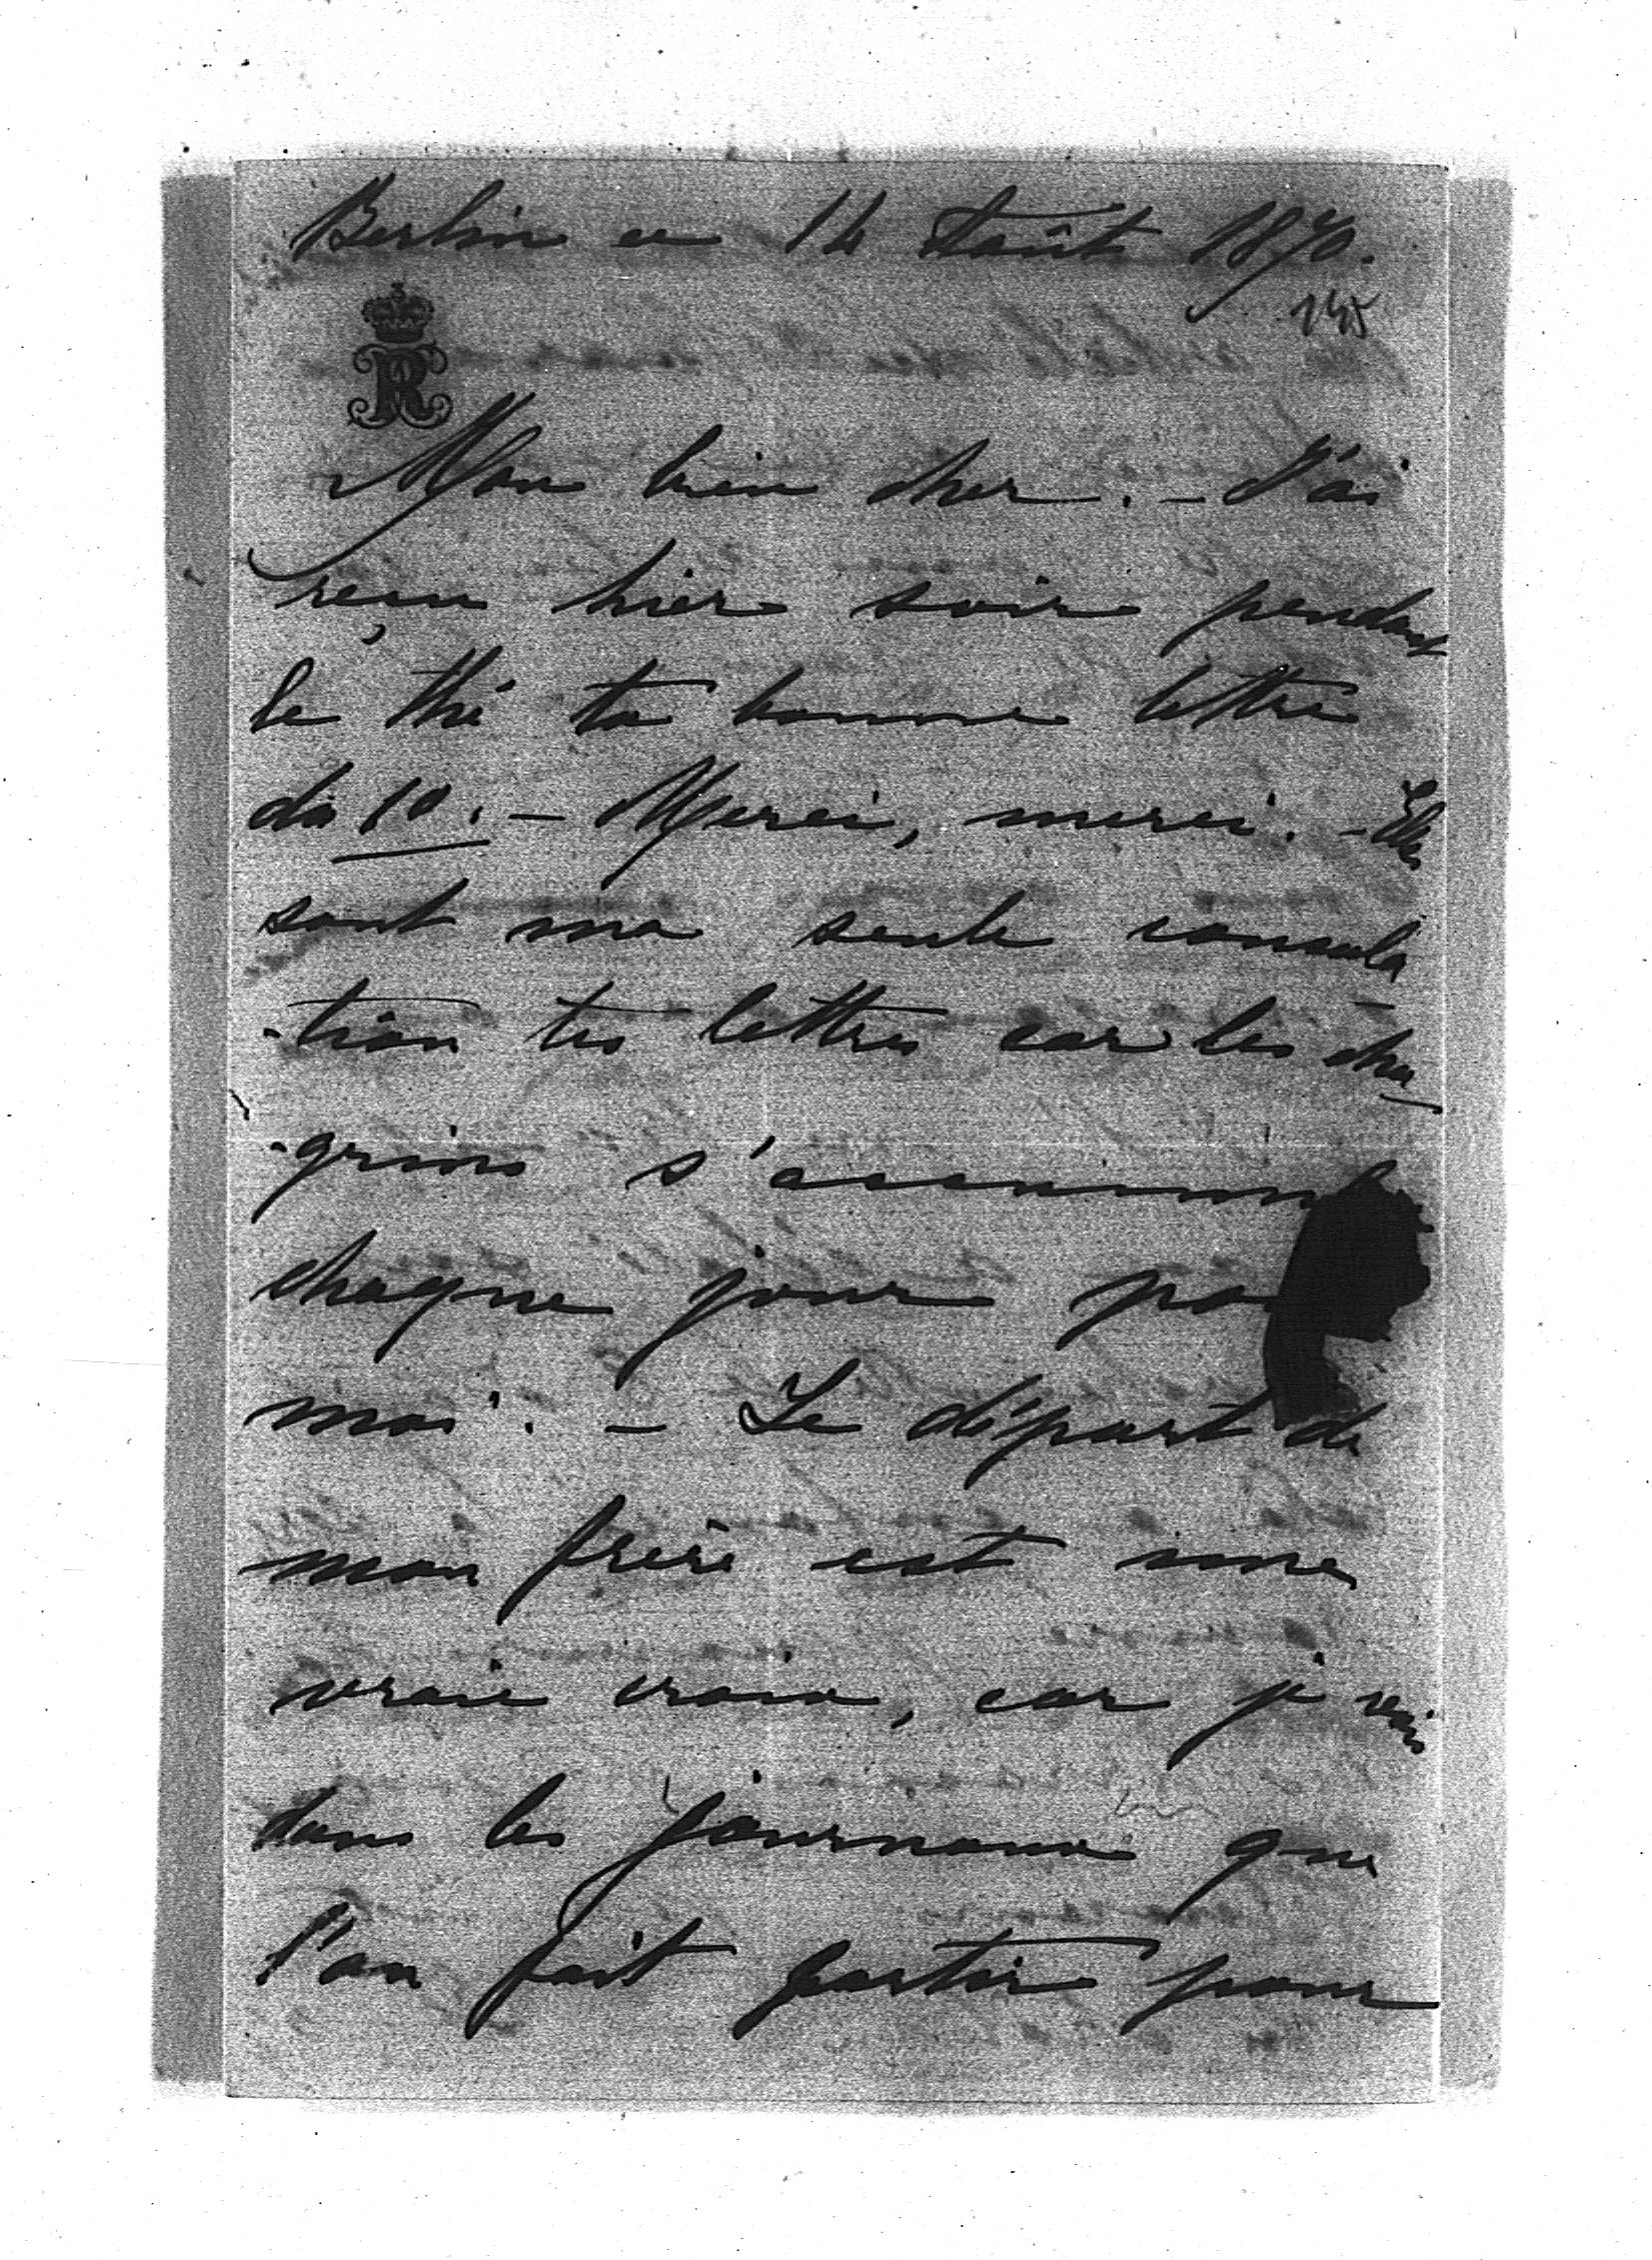 Berlin ce 14 Août 1870.
145
R
Mon bien cher. - J'ai
reçu hier soir pendant
le thé ta bonne lettre
du 10. - Merci, merci. - Elles
sont ma seule consola
-tion tes lettres car les cha
-grins s'accumul
chaque jour po
moi. - Le départ de
mon frère est une
vraie croix, car je vois
dans les journaux que
l'on fait partir pour